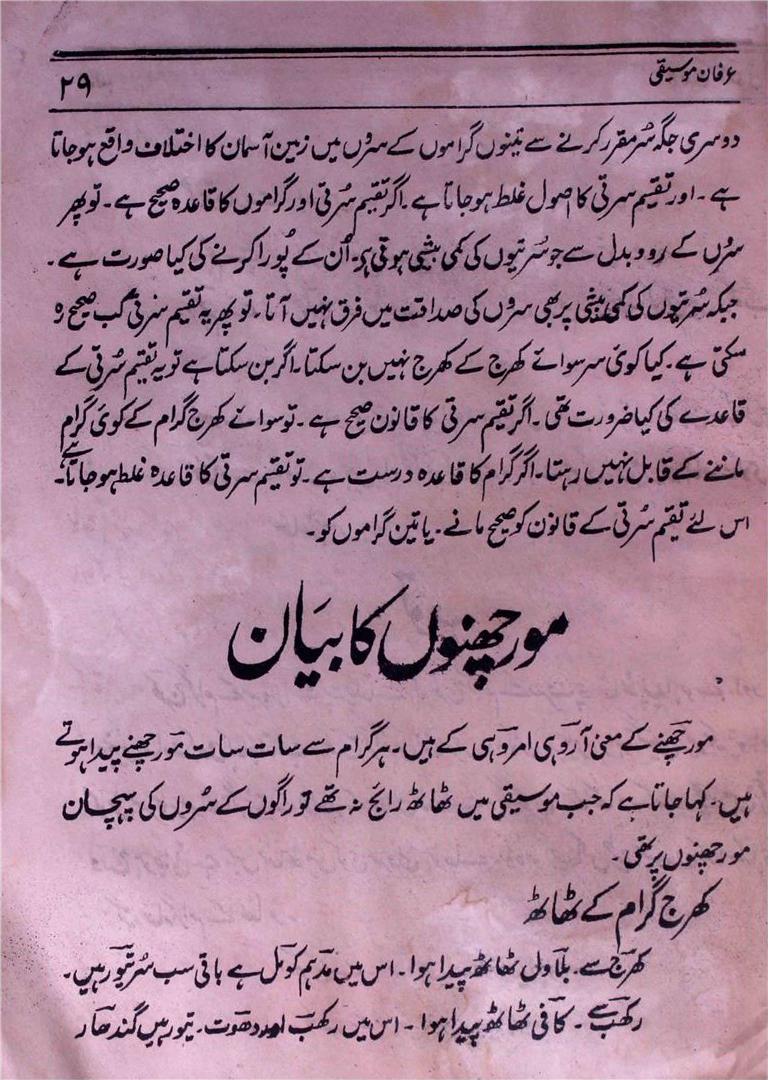 عرفان موسیقی
۲۹
دوسری جگہ سُر مقرر کرنے سے تینوں گراموں کے سروں میں زمین آسمان کا اختلاف واقع ہو جاتا
ہے ۔ اور تقیم سرتی کا اصول غلط ہو جاتا ہے ۔ اگر تقیم سُرتی اور گراموں کا قاعدہ صحیح ہے ۔ تو پھر
سروں کے رو و بدل سے جو سُرتیوں کی کمی بیشی ہوتی ہے۔ اُن کے پُورا کرنے کی کیا صورت ہے ۔
جبکہ سُرتیوں کی کمی بیشی پر بھی سروں کی صداقت میں فرق نہیں آتا ۔ تو پھر یہ تقیم سرتی کب صحیح ہ
سکتی ہے ۔ کیا کوئی سر سوائے کھرج کے کھرج نہیں بن سکتا ۔ اگر بن سکتا ہے تو یہ تقیم سُرتی کے
قاعدے کی کیا ضرورت تھی ۔ اگر تقیم سرتی کا قانون صحیح ہے ۔ تو سوائے کھرج گرام کے کوئی گرام
ماننے کے قابل نہیں رہتا ۔ اگر گرام کا قاعدہ درست ہے ۔ تو تقیم سرتی کا قاعدہ غلط ہو جاتا ہے۔
اس لئے تقیم سُرتی کے قانون کو صحیح مانے ۔ یا تین گراموں کو ۔
مورچھنوں کا بیَان
مورچَھنے کے معنی آروہی امروہی کے ہیں ۔ ہر گرام سے سات سات مَورچھنے پیدا ہوتے
ہیں ۔ کہا جاتا ہے کہ جب موسیقی میں ٹھاٹھ رائج نہ تھے تو راگوں کے سُروں کی پہچان
مورچھنوں پر تھی ۔
کھرج گرام کے ٹھاٹھ
کھرَج سے ۔ بلاول ٹھاٹھ پیدا ہوا ۔ اس میں مَدہم کومَل ہے باقی سب سُر تیور ہیں ۔
رکھب سے ۔ کافی ٹھاٹھ پیدا ہوا ۔ اس میں رکھب اور دھوت ۔ تیور ہیں گندھار